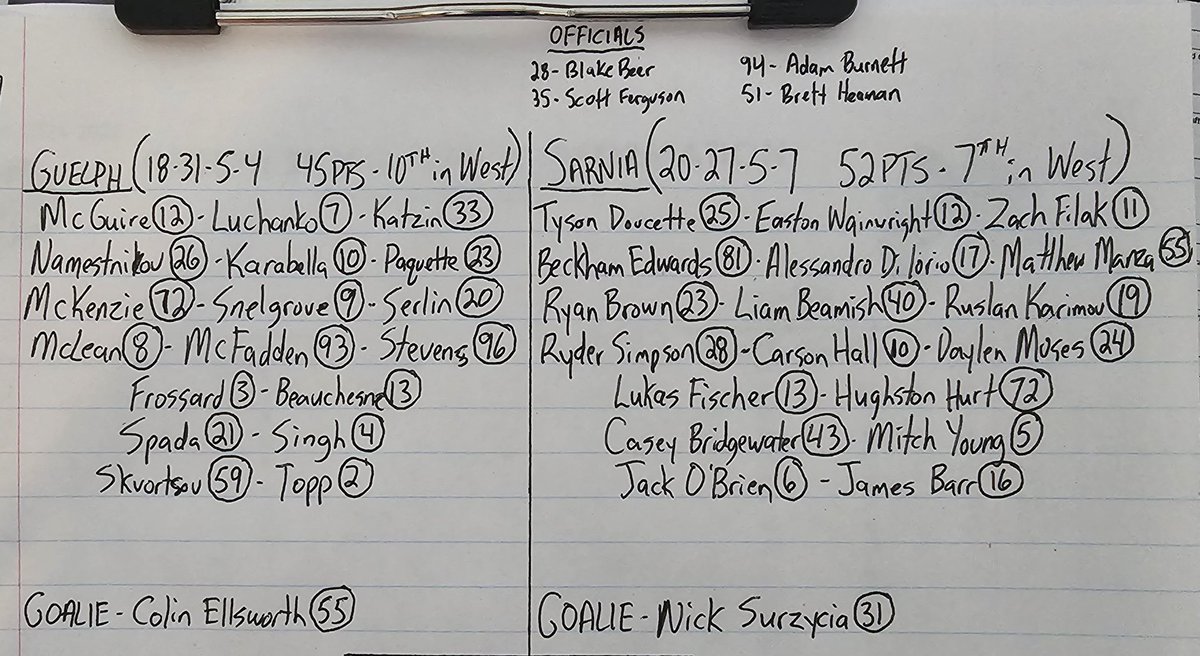 OFFICIALS
28- Blake Beer 94- Adam Burnett
35- Scott Ferguson 51- Brett Heaman
GUELPH (18-31-5-4 45PTS - 10TH in West)
McGuire 12 - Luchanko 7 - Katzin 33
Namestnikov 26 - Karabella 10 - Paquette 23
McKenzie 72 - Snelgrove 9 - Serlin 20
McLean 8 - McFadden 93 - Stevens 96
Frossard 3 - Beauchesne 13
Spada 21 - Singh 4
Skvortsov 59 - Topp 2
GOALIE - Colin Ellsworth 55
SARNIA (20-27-5-7 52PTS - 7TH in West)
Tyson Doucette 25 - Easton Wainwright 12 - Zach Filak 11
Beckham Edwards 81 - Alessandro Di Iorio 17 - Matthew Manza 55
Ryan Brown 23 - Liam Beamish 40 - Ruslan Karimov 19
Ryder Simpson 28 - Carson Hall 10 - Daylen Moses 24
Lukas Fischer 13 - Hughston Hurt 72
Casey Bridgewater 43 - Mitch Young 5
Jack O'Brien 6 - James Barr 16
GOALIE - Nick Surzycia 31